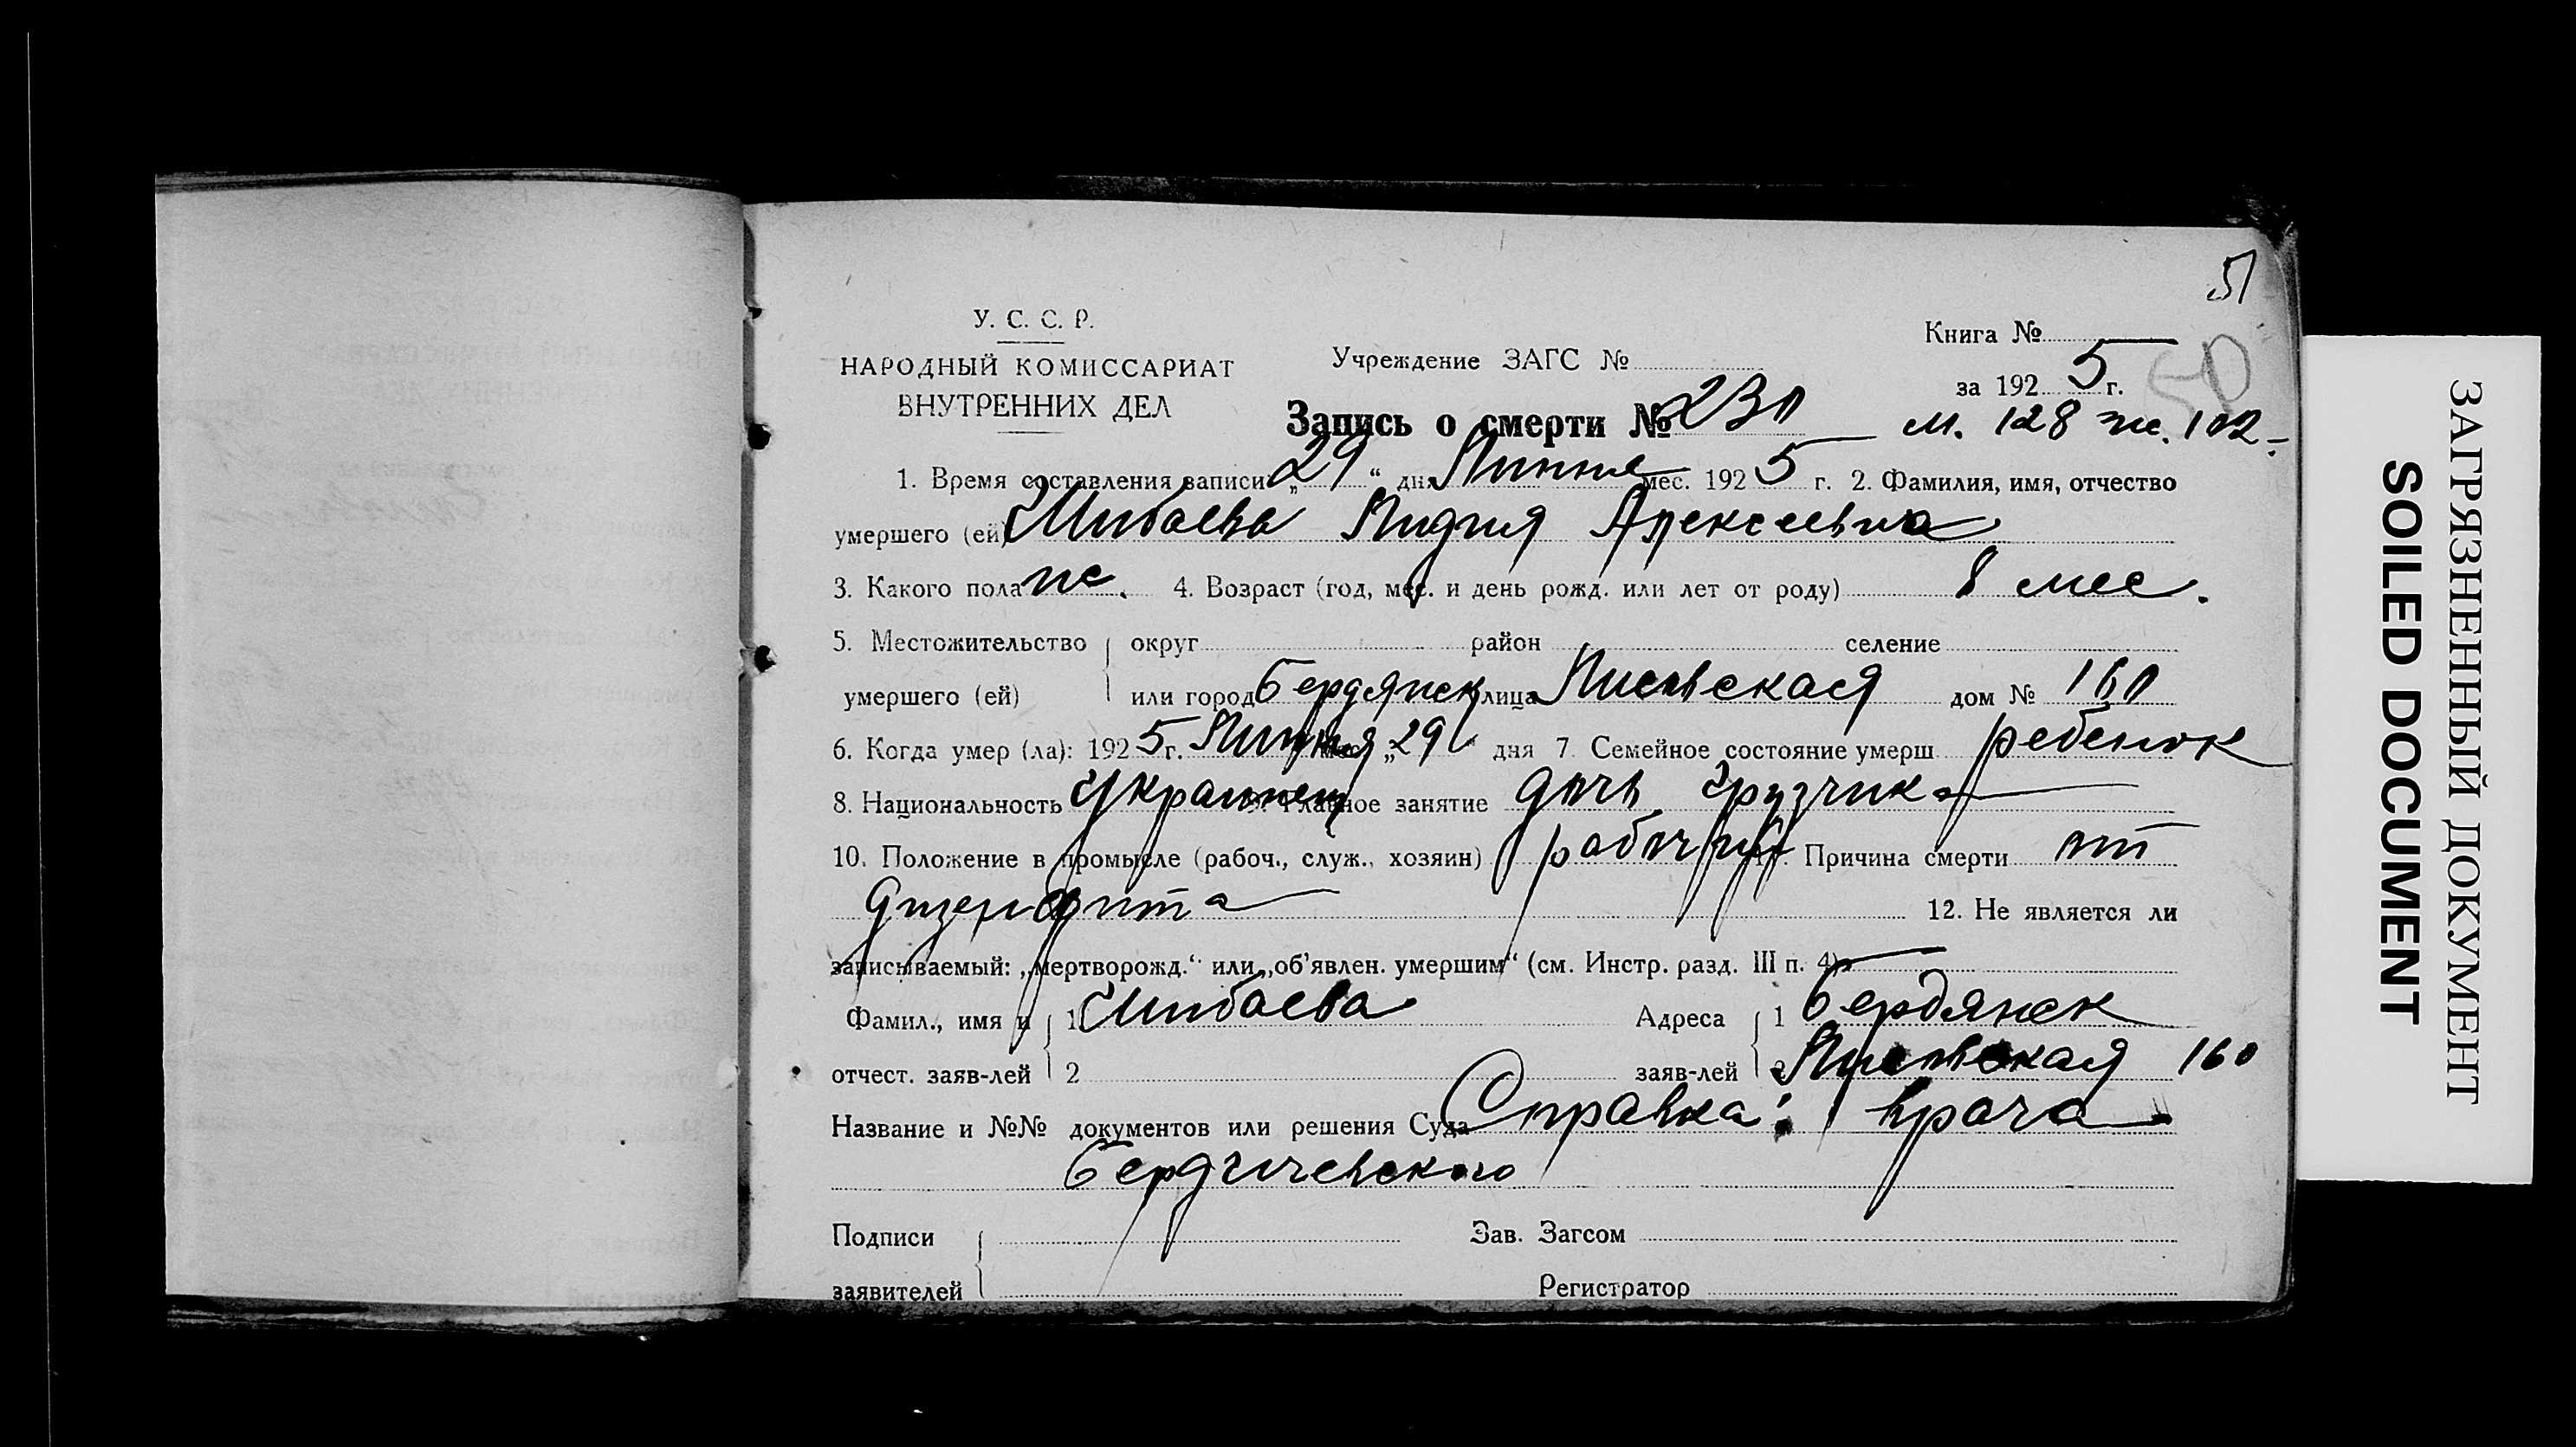 51
У. С. С. Р.
НАРОДНЫЙ КОМИССАРИАТ
ВНУТРЕННИХ ДЕЛ
Учреждение ЗАГС №
Книга №
за 192 5 г.
50
Запись о смерти № 230
м. 128 ж. 102
1. Время составления записи „29“ дня мес. 192 5 г. 2. Фамилия, имя, отчество
умершего (ей) Шибаева Лидия Алексеевна
3. Какого пола ж. 4. Возраст (год, мес. и день рожд. или лет от роду) 8 мес.
5. Местожительство округ район селение
умершего (ей) или город Бердянск улица дом № 160
6. Когда умер (ла): 192 5 г. мес. „29“ дня 7. Семейное состояние умерш. ребенок
8. Национальность Украинец 9. Главное занятие дочь грузчика
10. Положение в промысле (рабоч., служ., хозяин) рабочий 11. Причина смерти от
12. Не является ли
записываемый: „мертворожд.“ или „об’явлен. умершим“ (см. Инстр. разд. III п. 4)
Фамил., имя и 1 Шибаева Адреса 1 Бердянск
отчест. заяв-лей 2 заяв-лей 2 160
Название и №№ документов или решения Суда Справка: врача
Бердичевского
Подписи Зав. Загсом
заявителей Регистратор
ЗАГРЯЗНЕННЫЙ ДОКУМЕНТ
SOILED DOCUMENT